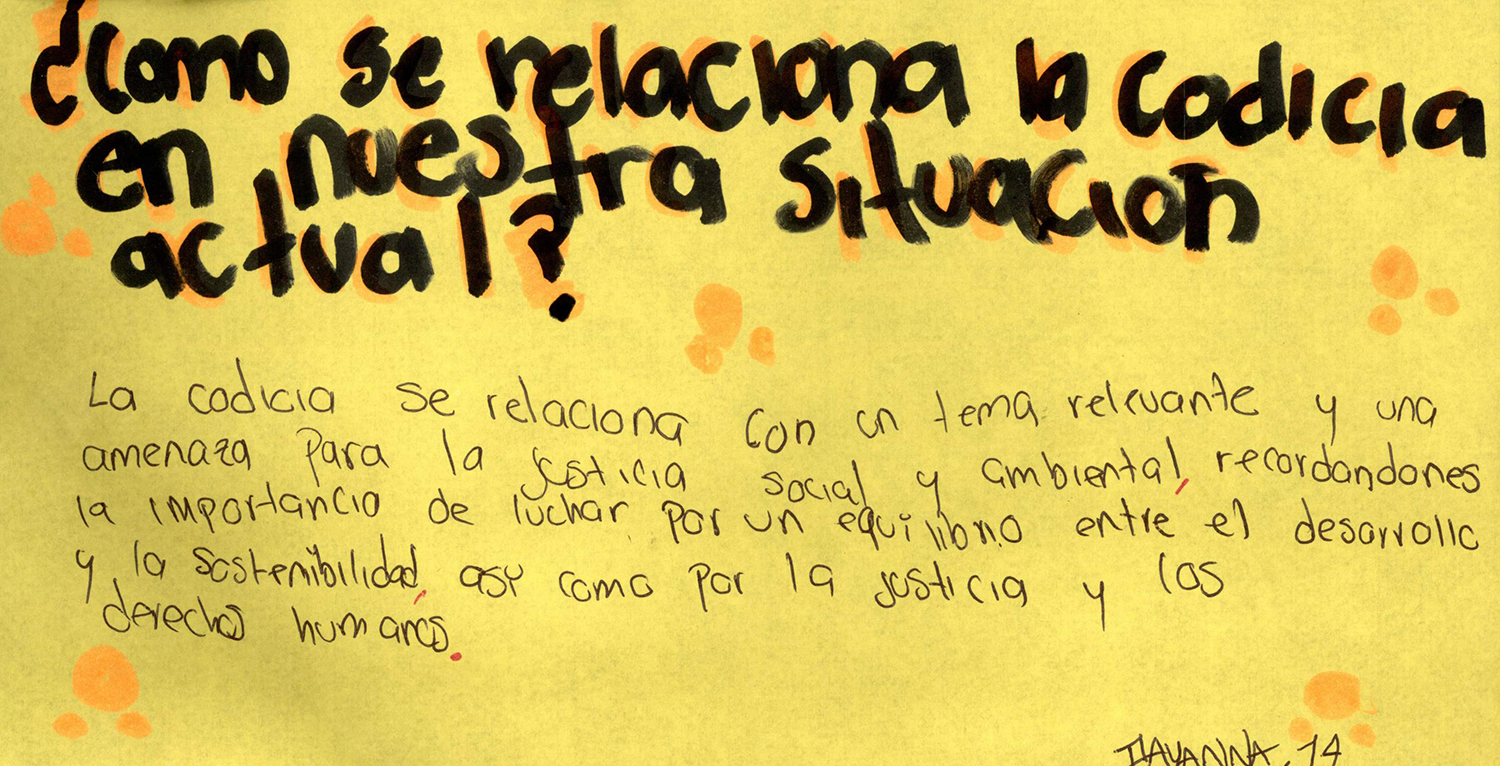 ¿Como se relaciona la codicia
en nuestra situacion
actual?
La codicia se relaciona con un tema relevante y una
amenaza para la justicia social y ambiental, recordandones
la importancia de luchar por un equilibrio entre el desarrollo
y la sostenibilidad, asy como por la justicia y los
derechos humanos.
DAYANNA, 14